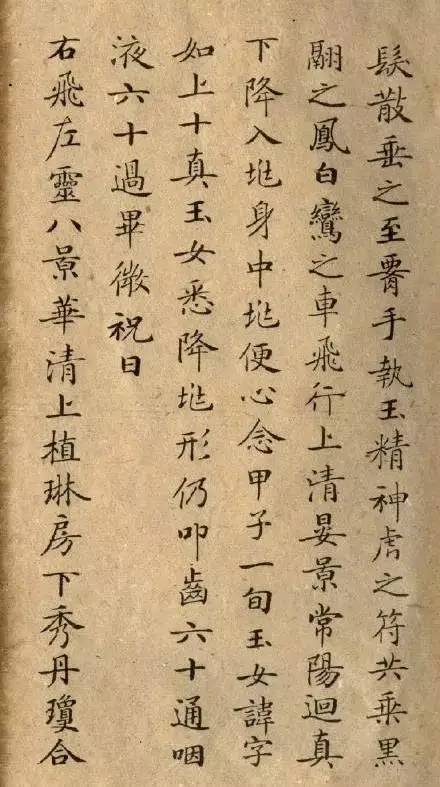 髮散垂之至腰手執玉精神虎之符共乗黒
翮之鳳白鸞之車飛行上清晏景常陽迴真
下降入兆身中兆便心念甲子一旬玉女諱字
如上十真玉女悉降兆形仍叩齒六十通咽
液六十過畢微祝曰
右飛左靈八景華清上植琳房下秀丹瓊合